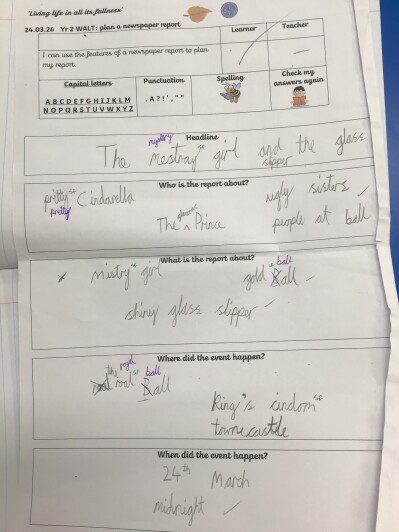 'Living life in all its fullness'
24.03.26 Yr 2 WALT: plan a newspaper report
Learner Teacher
I can use the features of a newspaper report to plan my report.
Capital letters Punctuation Spelling Check my answers again
A B C D E F G H I J K L M
N O P Q R S T U V W X Y Z
. A ? ! ' , " "
Headline
mystery
The mestray sp girl and the glass
slipper
Who is the report about?
pritty sp Cindarella ugly sisters
pretty
The glamours Prince people at ball
What is the report about?
mistry sp girl gold Ball ball
shiny glass slipper
Where did the event happen?
the royal ball
roal Ball
King's cindom sp
towne castle
When did the event happen?
24th March
midnight